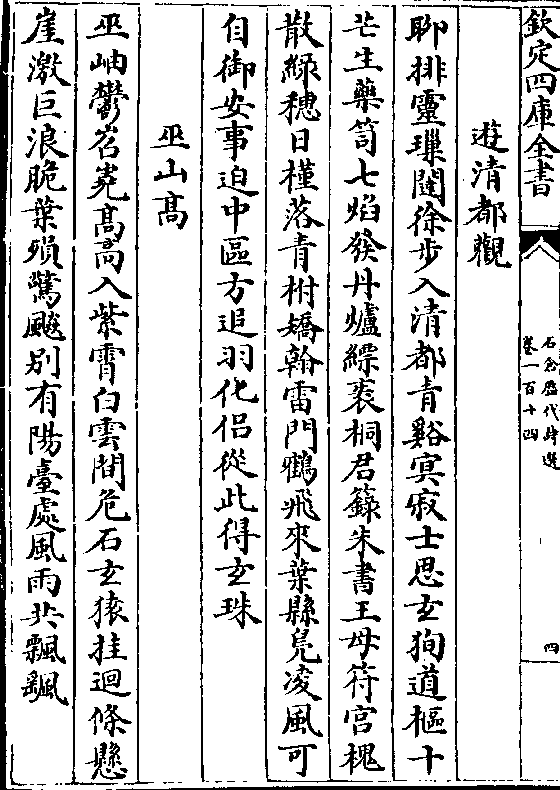 欽定四庫全書
石倉歷代詩選
卷一百十四
四
遊清都觀
聊排靈璅闥徐步入清都青谿冥寂士思玄狥道樞十
芒生藥笥七焰發丹爐縹裹桐君籙朱書王母符宫槐
散綠穗日槿落青柎矯翰雷門鶴飛來葉縣鳧凌風可
自御安事迫中區方追羽化侣從此得玄珠
巫山髙
巫岫鬱岧嶤髙髙入紫霄白雲間危石玄猿挂迴條懸
崖激巨浪脆葉殞驚飇别有陽臺處風雨共飄飖